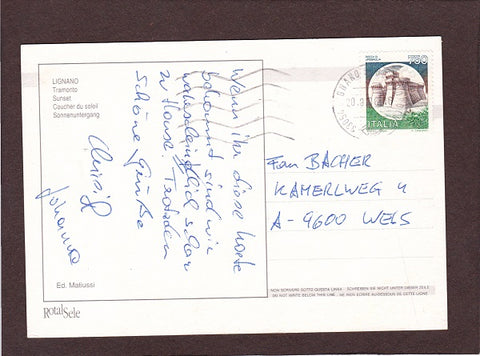 LIGNANO
Tramonto
Sunset
Coucher du soleil
Sonnenuntergang
Wenn ihr diese Karte
bekommt sind wir
wahrscheinlich schon
zu Hause. Trotzdem
schöne Grüße
Christl
Johanna
Ed. Matiussi
Rotalsele
ITALIA
Fam BACHER
KAMERLWEG 4
A-9600 WELS
NON SCRIVERE SOTTO QUESTA LINEA - SCHREIBEN SIE NICHT UNTER DIESER ZEILE
DO NOT WRITE BELOW THIS LINE - NE RIEN ECRIRE AU-DESSOUS DE CETTE LIGNE